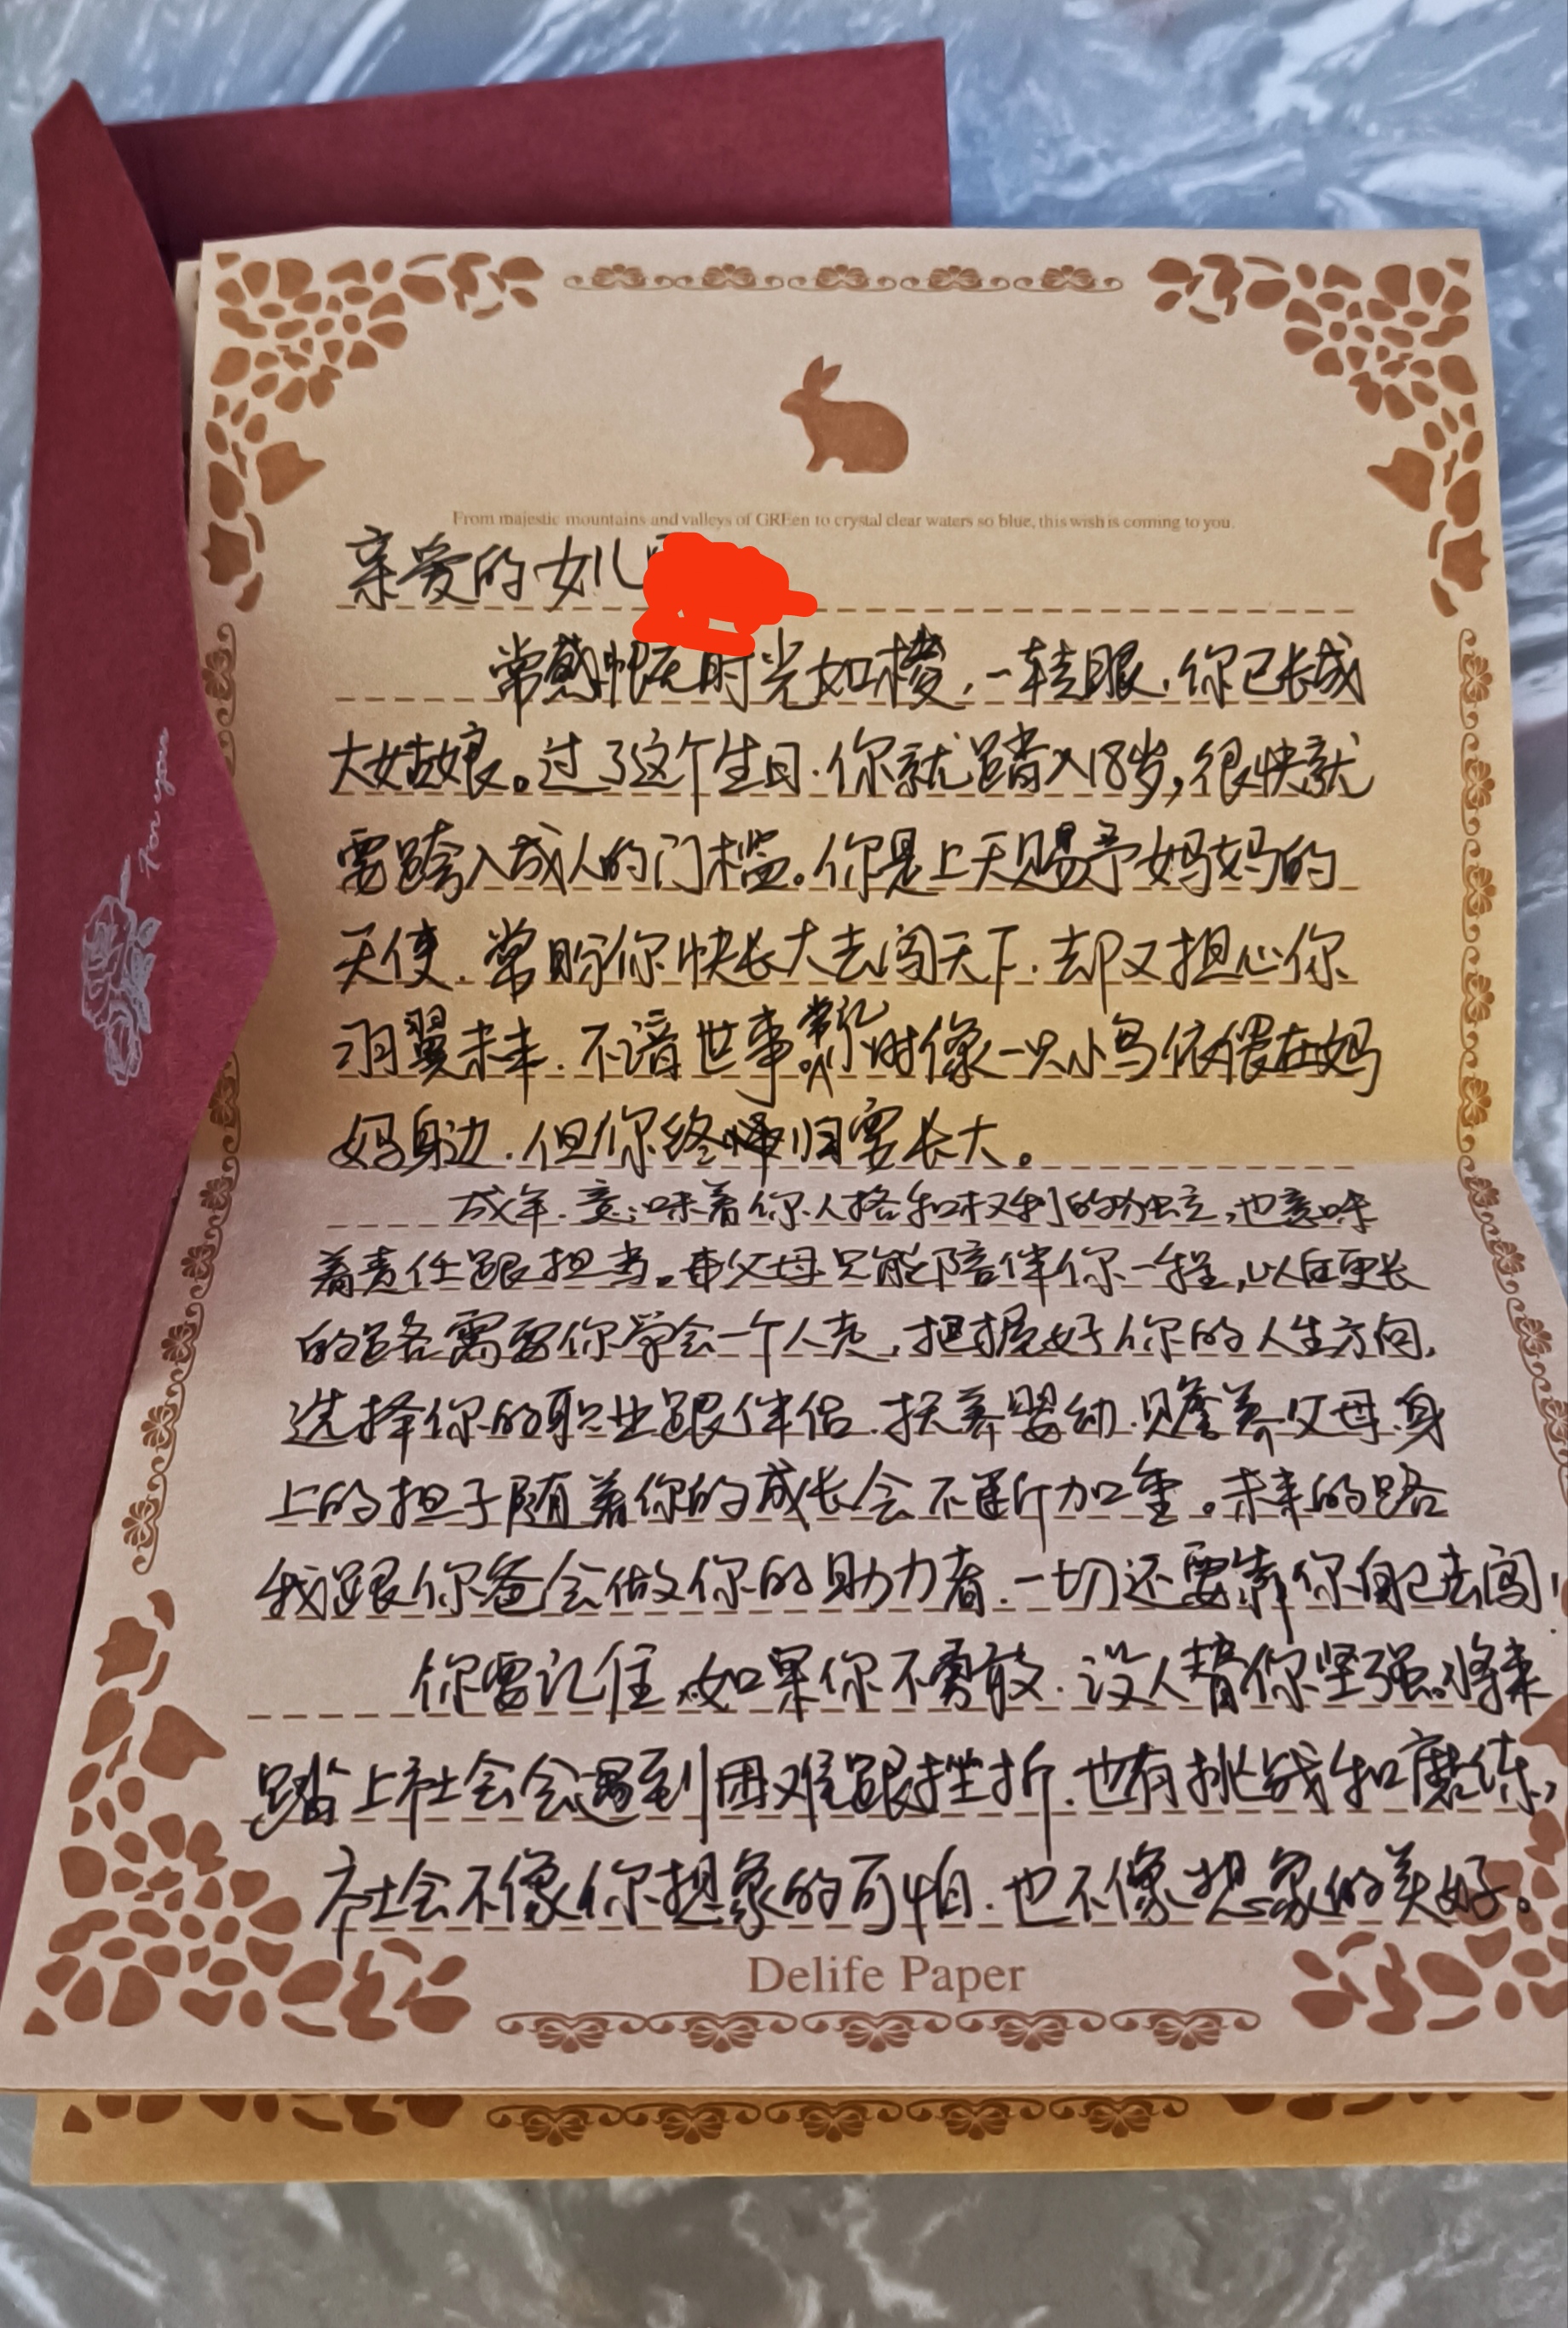 From majestic mountains and valleys of GREen to crystal clear waters so blue, this wish is coming to you.
亲爱的女儿
常感慨时光如梭,一转眼,你已长成
大姑娘。过了这个生日,你就踏入18岁,很快就
要跨入成人的门槛。你是上天赐予妈妈的
天使,常盼你快长大去闯天下,却又担心你
羽翼未丰,不谙世事。常忆你儿时像一只小鸟依偎在妈
妈身边,但你终归要长大。
成年,意味着你人格和权利的独立,也意味
着责任跟担当。父母只能陪伴你一程,以后更长
的路需要你学会一个人走,把握好你的人生方向,
选择你的职业跟伴侣,抚养婴幼,赡养父母,身
上的担子随着你的成长会不断加重。未来的路
我跟你爸会做你的助力者,一切还要靠你自己去闯!
你要记住,如果你不勇敢,没人替你坚强。将来
踏上社会会遇到困难跟挫折,也有挑战和磨练,
社会不像你想象的可怕,也不像想象的美好。
Delife Paper
For you